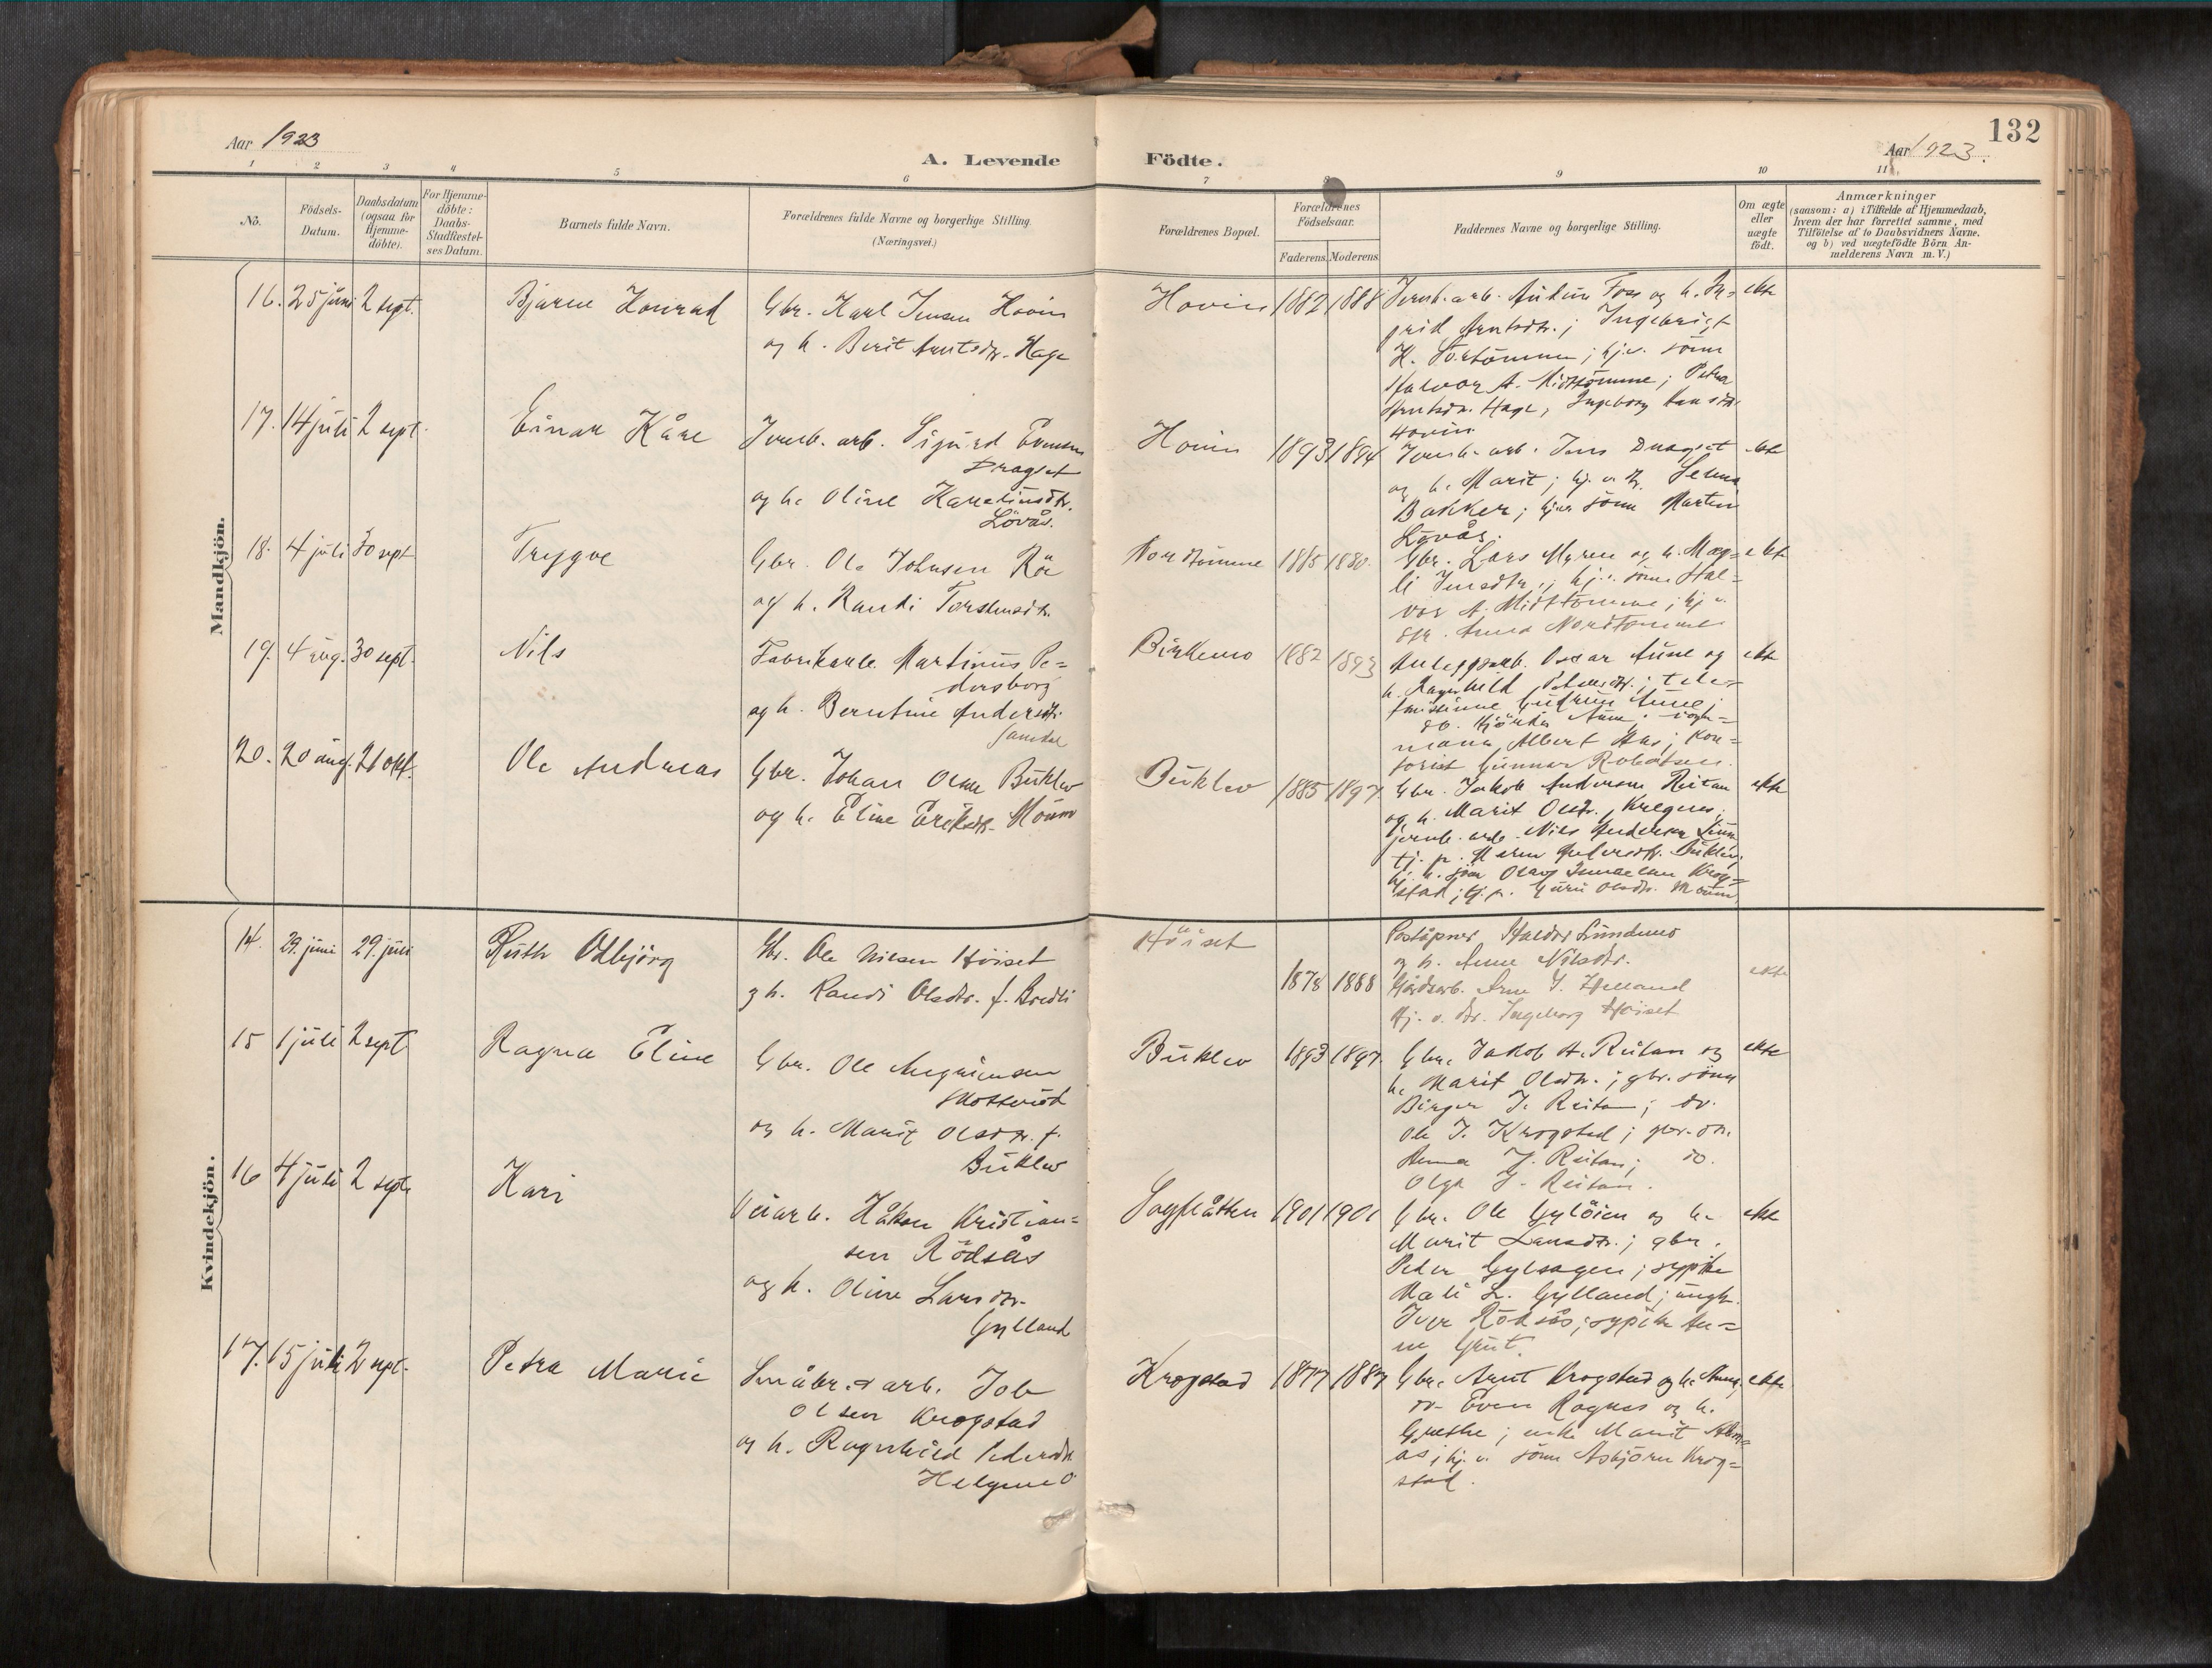 132
Aar 1923
Aar 1923.
A. Levende Födte.
1 2 3 4 5 6 7 8 9 10 11
No.
Födsels-
Datum.
Daabsdatum
(ogsaa for
Hjemme-
döbte).
For Hjemme-
döbte:
Daabs-
Stadfestel-
ses Datum.
Barnets fulde Navn.
Forældrenes fulde Navne og borgerlige Stilling.
(Næringsvei.)
Forældrenes Bopæl.
Forældrenes
Födselsaar.
Faderens. Moderens.
Faddernes Navne og borgerlige Stilling.
Om ægte
eller
uægte
födt.
Anmærkninger
(saasom: a) i Tilfælde af Hjemmedaab,
hvem der har forrettet samme, med
Tilföielse af to Daabsvidners Navne,
og b) ved uægtefödte Börn An-
melderens Navn m.V.)
Mandkjön.
16. 25 juni 2 sept.
Bjarne Konrad
Gbr. Karl Jensen Hovin
og h. Berit Arntsdtr. Hage
Hovin 1882 1888
Jernb. arb. Foss og h. In-
grid Arntsdtr.; Ingebrigt
K. ; hj.v. sönn
Halvor A. Midttömme; Petra
Arntsdr. Hage, Ingeborg
Hovin.
ekte
17. 14 juli 2 sept.
Einar Kåre
Jernb. arb. Sigurd Evensen
Dragset
og h. Oline Karelinusdtr.
Lövås.
Hovin 1893 1894
Jernb. arb. Jens Dragset
og h. Marit; hj. v. dtr. Selma
Bakken; hj.v. sönn Martin
Lövås.
ekte
18. 4 juli 30 sept
Trygve
Gbr. Ole Johnsen Röe
og h. Randi Torstensdtr.
Nordtömme 1885 1880.
Gbr. Lars Myren og h. Mag-
li Jensdtr.; hj.v. sönn Hal-
vor A. Midttömme; hj v.
dtr. Anna Nordtömme
ekte
19. 4 aug. 30 sept.
Nils
Fabrikarb. Martinus Pe-
dersborg
og h. Berntine Andersdtr.
Birkemo 1882 1893
Anleggsarb. Oscar Aune og
h. Ragnhild Petersdtr.; tele-
fonistinne Gudrun Aune;
do. Hjördis Aune; vogn-
mann Albert Aas; kon-
torist Gunnar Robertsen.
ekte
20. 20 aug. 21 okt.
Ole Andreas
Gbr. Johan Olsen Buklev
og h. Eline Eriksdtr. Moum
Buklev 1885 1897
Gbr. Jakob Andersen Reitan
og h. Marit Olsdtr., Kregnes;
jernb. arb. Nils Andersen
tj. p. Maren Andersdtr. Buklev;
sön Olav Krog-
stad; tj. p. Guru Olsdtr. Moum.
ekte
Kvindekjön.
14. 29. juni 29. juli
Ruth Odbjörg
Gbr. Ole Nilsen Höiset
og h. Randi Olsdtr. f. Bredli
Höiset
1878 1888
Poståpner Haldor Lundemo
og h. Anne Nilsdtr.
Gårdsarb. Arne J. Helland
Hj. v. dtr. Ingeborg Höiset
ekte
15 1 juli 2 sept
Ragna Eline
Gbr. Ole Arngrimsen
og h. Marit Olsdtr. f.
Buklev
Buklev 1893 1897.
Gbr. Jakob A. Reitan og
h. Marit Olsdtr.; gbr. sönn
Birger J. Reitan; do.
Ole J. Krogstad; gbr. dtr.
Anna J. Reitan; do.
Olga J. Reitan.
ekte
16 4 juli 2 sept.
Kari
Veiarb. Håkon Kristian-
sen Rödsås
og h. Oline Larsdtr.
Gylland
Sagflåtten 1901 1901
Gbr. Ole Gylöien og h.
Marit Larsdtr.; gbr.
Peder Gylsagen; sypike
Mali L. Gylland; ungk.
Iver Rödsås; sypike An-
ne Grut.
ekte
17. 15 juli 2 sept.
Petra Marie
Småbr. & arb. Job
Olsen Krogstad
og h. Ragnhild Pedersdtr.
Helgemo
Krogstad 1877 1887
Gbr. Arnt Krogstad og h. Anna;
do. Even Rognes og h.
Grethe; enke Marit
ås; hj. v. sönn Asbjörn Krog-
stad.
ekte